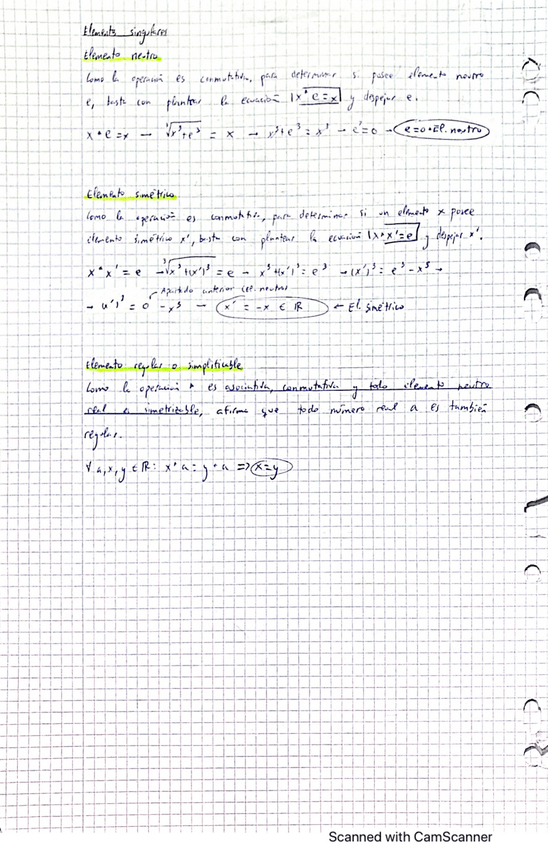 Elementos singulares
Elemento neutro
Como la operación es conmutativa, para determinar si posee elemento neutro
e, basta con plantear la ecuación |x * e = x| y despejar e.
x * e = x → ∛x³+e³ = x → x³+e³ = x³ → e³=0 → e=0 → El. neutro
Elemento simétrico
Como la operación es conmutativa, para determinar si un elemento x posee
elemento simétrico x', basta con plantear la ecuación |x * x' = e| y despejar x'.
x * x' = e → ∛x³+(x')³ = e → x³+(x')³ = e³ → (x')³ = e³ - x³ →
Apartado anterior (el. neutro)
→ (x')³ = 0 - x³ → x' = -x ∈ ℝ ← El. simétrico
Elemento regular o simplificable
Como la operación * es asociativa, conmutativa y todo elemento neutro
real a simetrizable, afirma que todo número real a es también
regular.
∀ a, x, y ∈ ℝ: x * a = y * a => x=y
Scanned with CamScanner